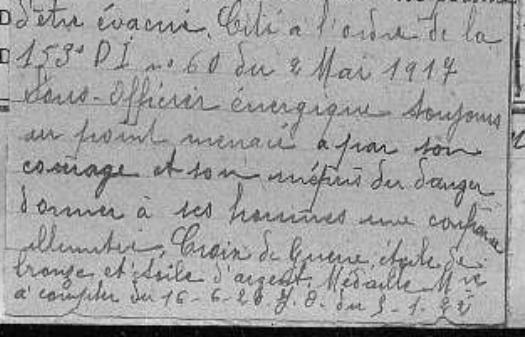 d'être évacué. Cité à l'ordre de la
153e DI no 60 du 2 Mai 1917
Sous-Officier énergique toujours
au point menacé a par son
courage et son mépris du danger
donner à ses hommes une confiance
illimitée. Croix de Guerre étoile de
bronze et étoile d'argent. Médaille Mre
à compter du 16-6-20 J.O. du 5-1-22